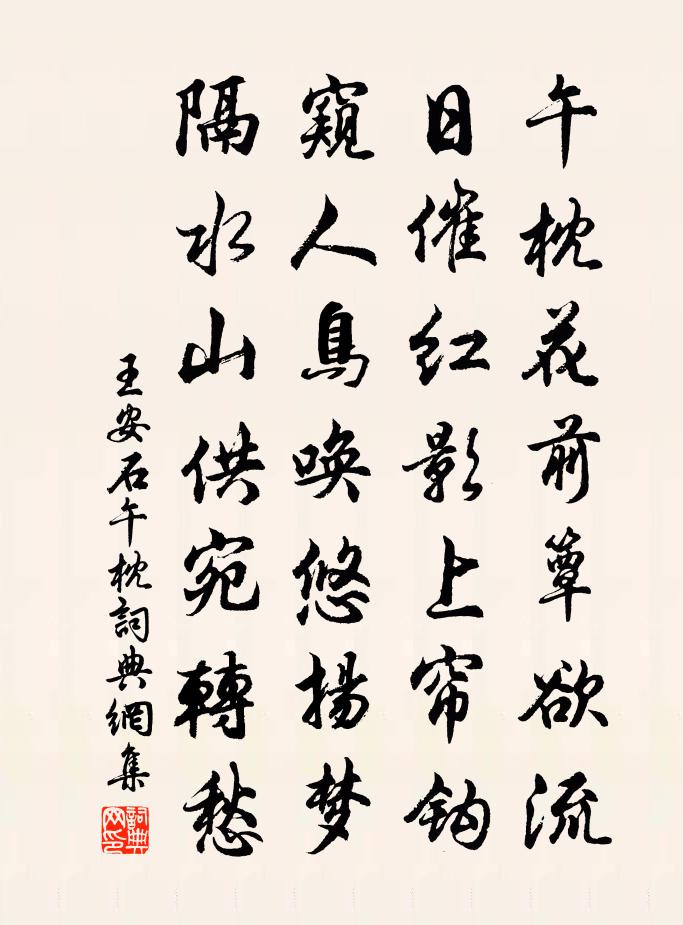 午枕花前簟欲流
日催红影上帘钩
窥人鳥唤悠揚梦
隔水山供宛轉愁
王安石午枕詞典網集
詞典網印